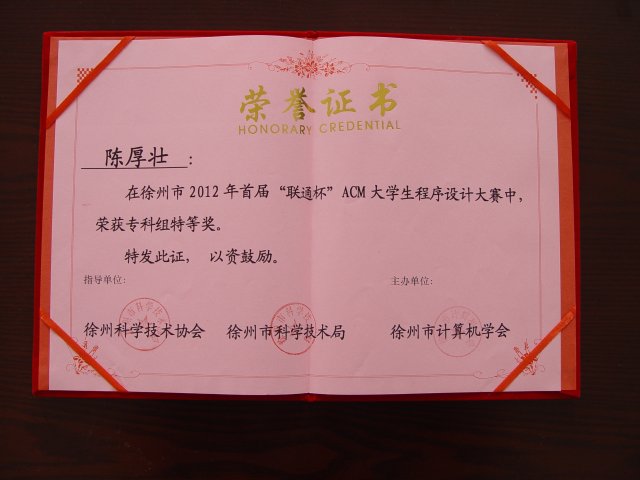 荣誉证书
HONORARY CREDENTIAL
陈厚壮：
在徐州市2012年首届“联通杯”ACM大学生程序设计大赛中，
荣获专科组特等奖。
特发此证，以资鼓励。
指导单位： 主办单位：
徐州科学技术协会 徐州市科学技术局 徐州市计算机学会